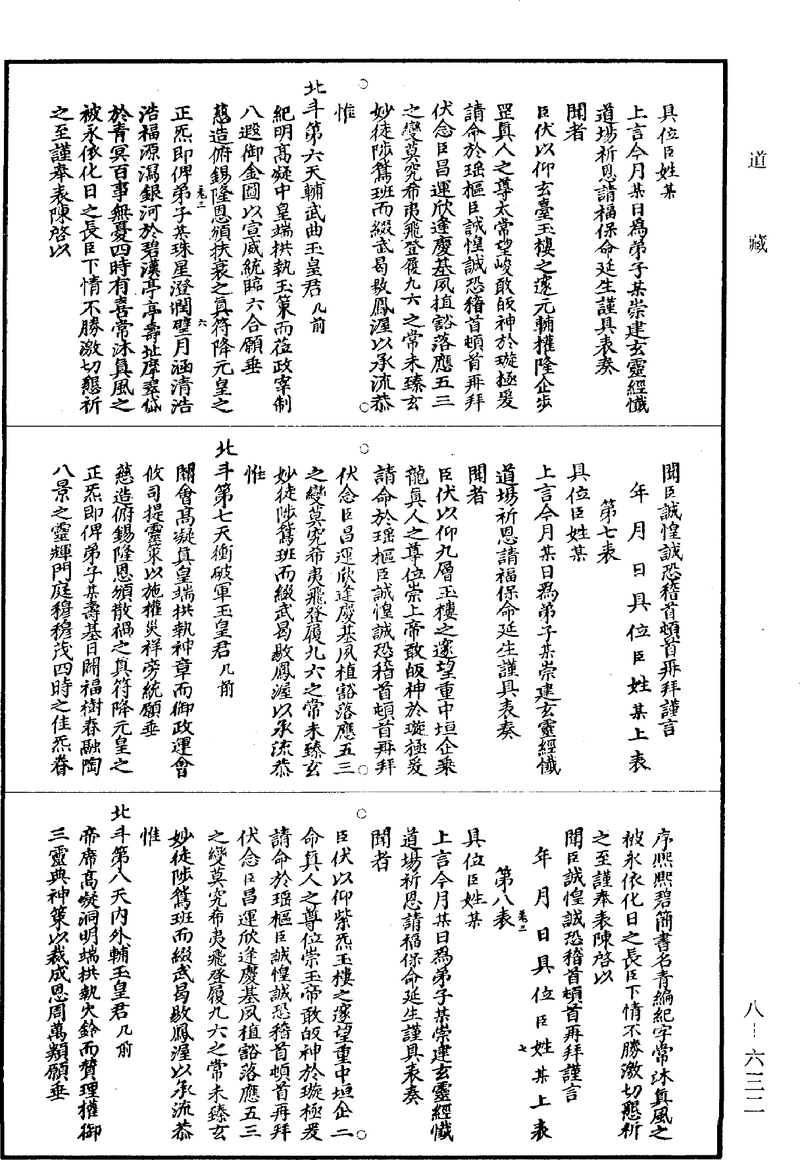 道藏
八-六三二
具位臣姓某
上言今月某日為弟子某崇建玄靈經懺
道場祈恩請福保命延生謹具表奏
聞者
臣伏以仰玄臺玉樓之邃元輔權隆企步
罡真人之尊太常望峻敢皈神於璇極爰
請命於瑶樞臣誠惶誠恐稽首頓首再拜
伏念臣昌運欣逢慶基夙植豁落應五三
之變莫究希夷飛登履九六之常未臻玄
妙徒陟鵉班而綴武曷敭鳳渥以承流恭
惟
北斗第六天輔武曲玉皇君几前
紀明高凝中皇端拱執玉策而莅政宰制
八遐御金圖以宣威統臨六合願垂
慈造俯錫隆恩頒扶衰之真符降元皇之
卷二
六
正炁即俾弟子某珠星澄潤璧月涵清浩
浩福源瀉銀河於碧漢亭亭壽址摩翠岱
於青冥百事無憂四時有喜常沐真風之
被永依化日之長臣下情不勝激切懇祈
之至謹奉表陳啓以
聞臣誠惶誠恐稽首頓首再拜謹言
年月日具位臣姓某上表
第七表
具位臣姓某
上言今月某日為弟子某崇建玄靈經懺
道場祈恩請福保命延生謹具表奏
聞者
臣伏以仰九層玉樓之邃望重中垣企乘
龍真人之尊位崇上帝敢皈神於璇極爰
請命於瑶樞臣誠惶誠恐稽首頓首再拜
伏念臣昌運欣逢慶基夙植豁落應五三
之變莫究希夷飛登履九六之常未臻玄
妙徒陟鵉班而綴武曷敭鳳渥以承流恭
惟
北斗第七天衝破軍玉皇君几前
關會高凝真皇端拱執神章而御政運會
攸司提靈策以施權災祥旁統願垂
慈造俯錫隆恩頒散禍之真符降元皇之
正炁即俾弟子某壽基日闢福樹春融陶
八景之靈輝門庭穆穆茂四時之佳炁眷
序熙熙碧簡書名青編紀字常沐真風之
被永依化日之長臣下情不勝激切懇祈
之至謹奉表陳啓以
聞臣誠惶誠恐稽首頓首再拜謹言
卷二
七
年月日具位臣姓某上表
第八表
具位臣姓某
上言今月某日為弟子某崇建玄靈經懺
道場祈恩請福保命延生謹具表奏
聞者
臣伏以仰紫炁玉樓之邃望重中垣企二
命真人之尊位崇玉帝敢皈神於璇極爰
請命於瑶樞臣誠惶誠恐稽首頓首再拜
伏念臣昌運欣逢慶基夙植豁落應五三
之變莫究希夷飛登履九六之常未臻玄
妙徒陟鵉班而綴武曷敭鳳渥以承流恭
惟
北斗第八天内外輔玉皇君几前
帝席高凝洞明端拱執火鈴而贊理權御
三靈典神策以裁成恩周萬類願垂